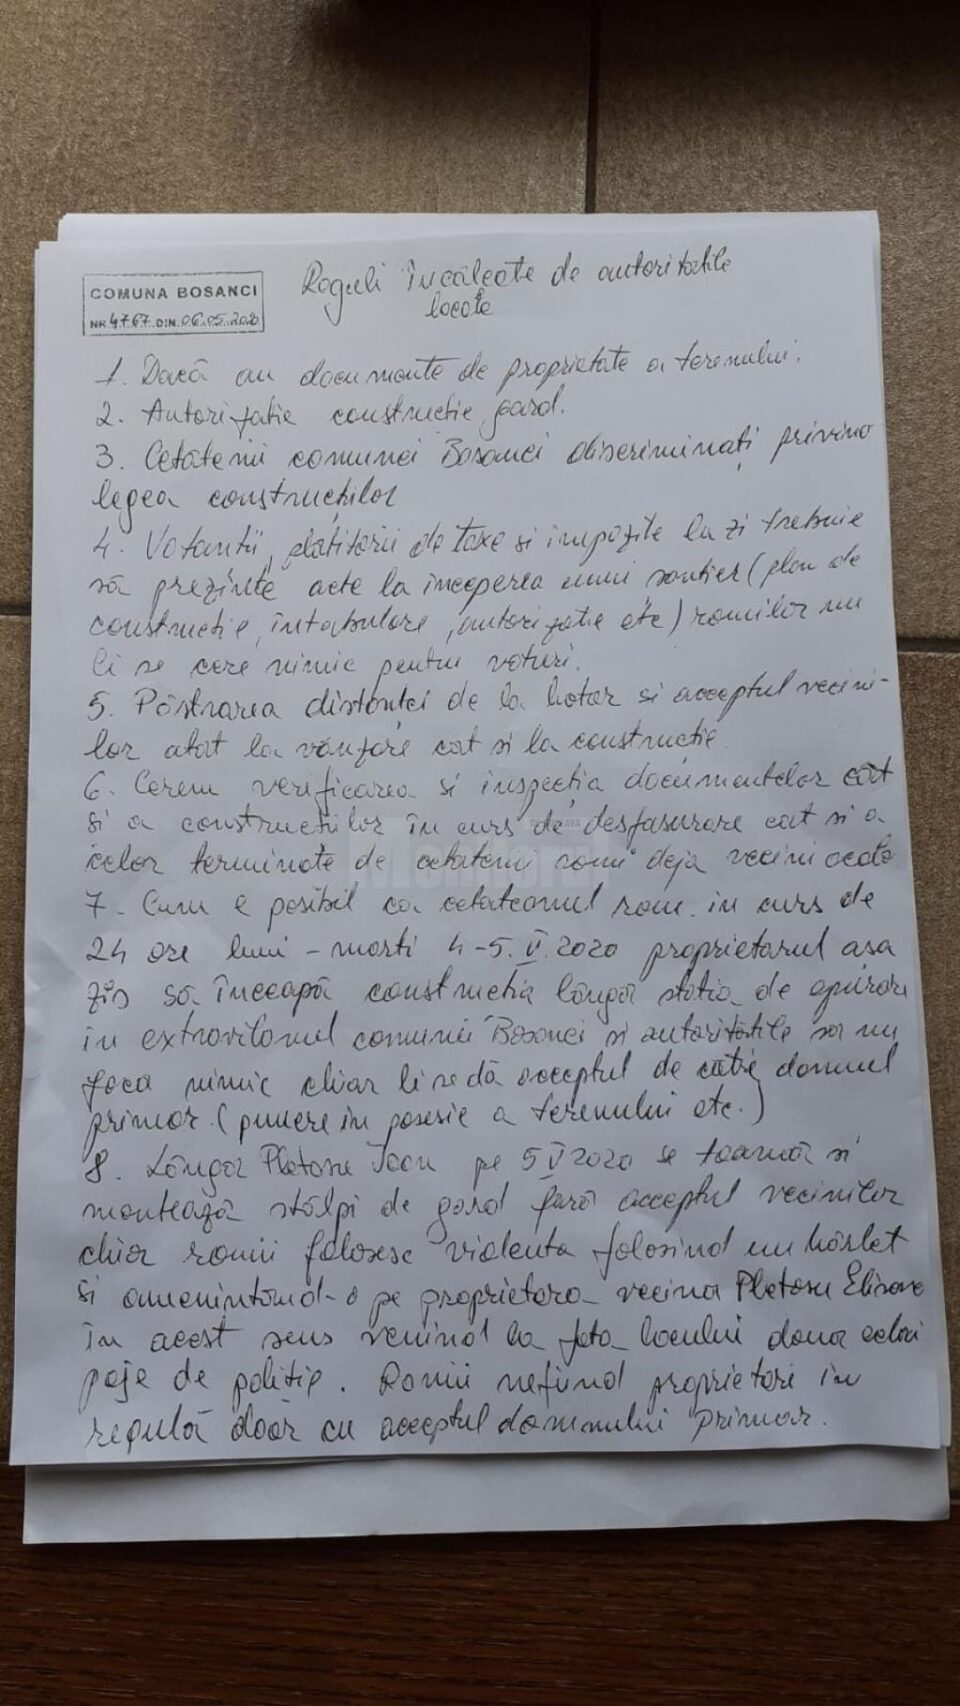 COMUNA BOSANCI
NR. 4767 DIN. 06.05.2020
Reguli încălcate de autoritatile
locale
1. Dacă au documente de proprietate a terenului.
2. Autorizatie constructie gard.
3. Cetatenii comunei Bosanci discriminați privind
legea construcțiilor
4. Votantii, plătitorii de taxe si impozite la zi trebuie
să prezinte acte la inceperea unui santier (plan de
constructie, intabulare, autorizatie etc) romilor nu
li se cere nimic pentru voturi.
5. Păstrarea distanței de la hotar si acceptul vecini-
lor atat la vânzare cat si la constructie
6. Cerem verificarea si inspecția documentelor cât
si a constructiilor în curs de desfasurare cat si a
celor terminate de cetateni romi deja vecini acolo
Monitorul
7. Cum e posibil ca cetateanul rom. in curs de
24 ore luni - marti 4-5.V.2020 proprietarul asa
zis să înceapă constructia lângă statia de epurare
in extravilanul comunii Bosanci si autoritătile sa nu
faca nimic chiar li se dă acceptul de către domnul
primar. (punere in posesie a terenului etc.)
8. Lângă Pletosu Ioan pe 5 V 2020 se toarnă si
montează stâlpi de gard fără acceptul vecinilor
chiar romii folosesc violenta folosind un hârlet
si amenintand-o pe proprietara vecina Pletosu
în acest sens venind la fata locului doua
de politie. Romii nefiind proprietari in
regulă doar cu acceptul domnului primar.